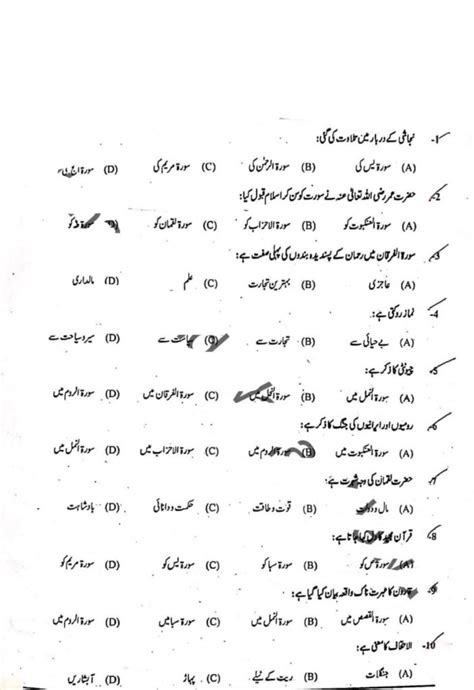 1- نجاشی کے دربار میں تلاوت کی گئی:
(A) سورۃ یٰس کی (B) سورۃ الرحمٰن کی (C) سورۃ مریم کی (D) سورۃ
2- حضرت عمر رضی اللہ تعالیٰ عنہ نے سورت کو سن کر اسلام قبول کیا:
(A) سورۃ العنکبوت کو (B) سورۃ الاحزاب کو (C) سورۃ لقمان کو (D) سورۃ طٰہٰ کو
3- سورۃ الفرقان میں رحمان کے پسندیدہ بندوں کی پہلی صفت ہے:
(A) عاجزی (B) بہترین تجارت (C) علم (D) مالداری
4- نماز روکتی ہے:
(A) بے حیائی سے (B) تجارت سے (C) سیاست سے (D) سیر و سیاحت سے
5- چیونٹی کا ذکر ہے:
(A) سورۃ النحل میں (B) سورۃ النمل میں (C) سورۃ الفرقان میں (D) سورۃ الروم میں
6- رومیوں اور ایرانیوں کی جنگ کا ذکر ہے:
(A) سورۃ العنکبوت میں (B) سورۃ الروم میں (C) سورۃ الاحزاب میں (D) سورۃ النمل میں
7- حضرت لقمان کی وجہ شہرت ہے:
(A) مال و دولت (B) قوت و طاقت (C) حکمت و دانائی (D) بادشاہت
8- قرآن مجید کا دل کہا جاتا ہے:
(A) سورۃ ص کو (B) سورۃ سبا کو (C) سورۃ یٰس کو (D) سورۃ مریم کو
9- قارون کا عبرت ناک واقعہ بیان کیا گیا ہے:
(A) سورۃ القصص میں (B) سورۃ النمل میں (C) سورۃ سبا میں (D) سورۃ الروم میں
10- الاحقاف کا معنی ہے:
(A) جنگلات (B) ریت کے ٹیلے (C) پہاڑ (D) آبشاریں